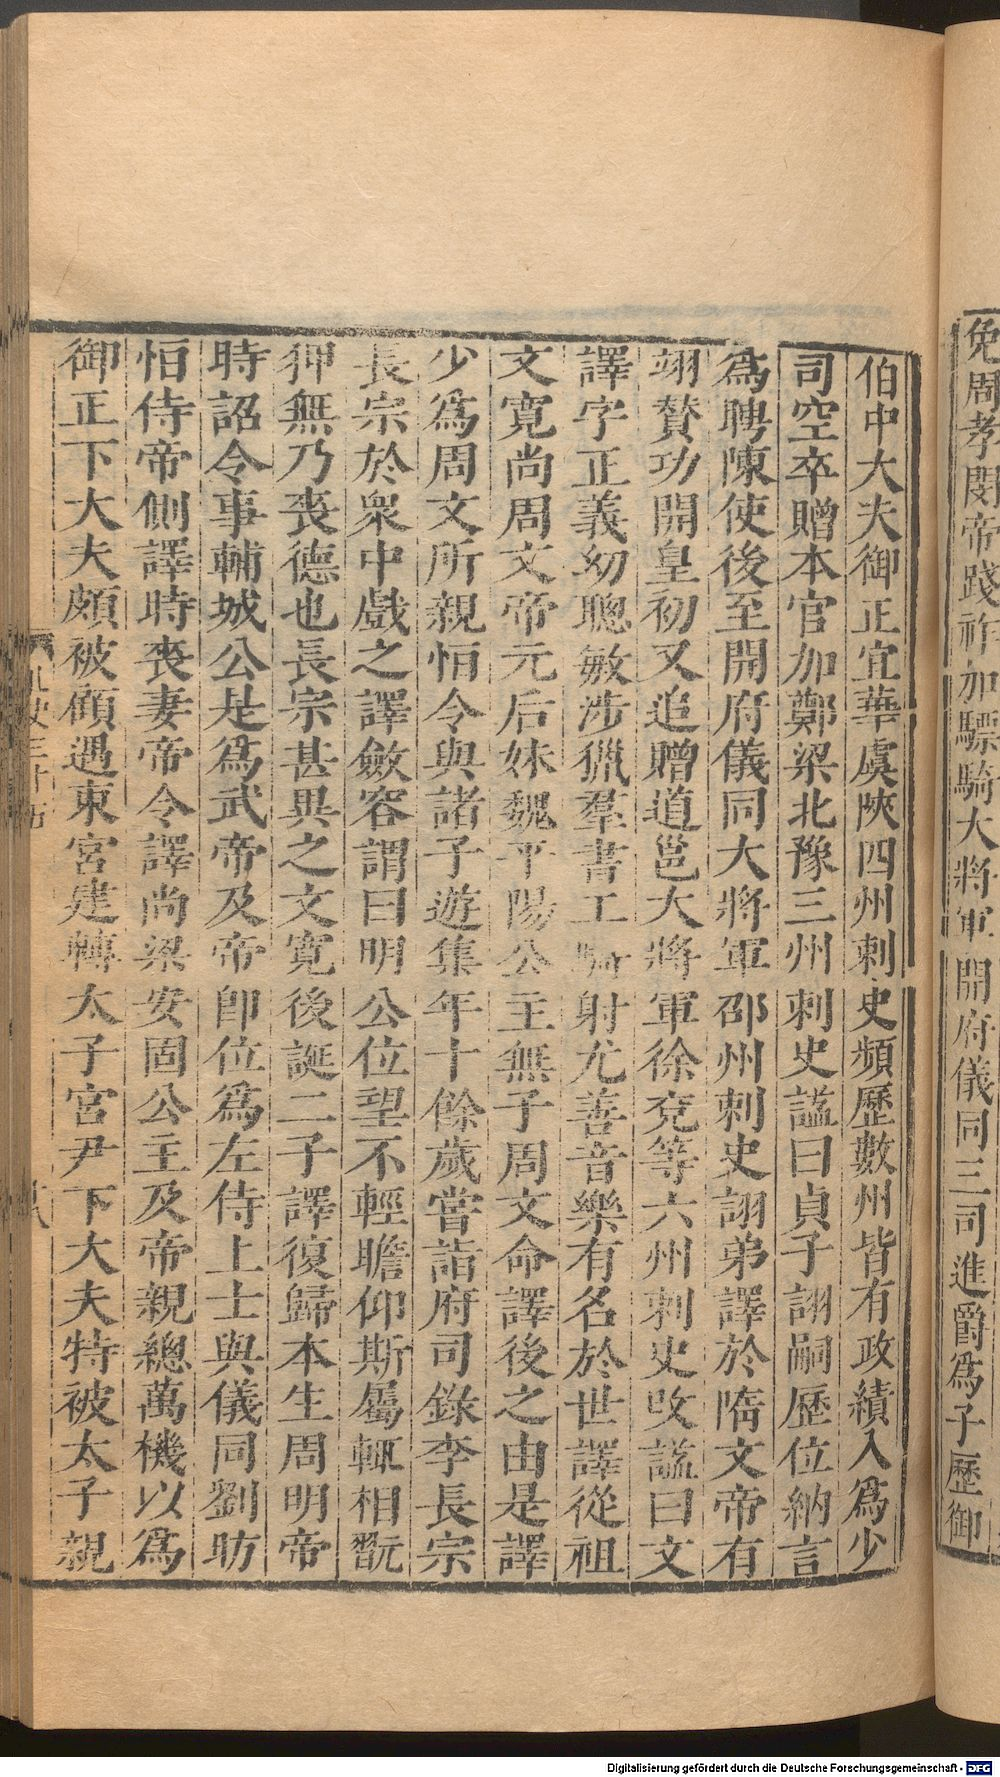 免周孝閔帝踐祚加驃騎大將軍開府儀同三司進爵爲子歷御
伯中大夫御正宜華虞陜四州刺史頻歷數州皆有政績入爲少
司空卒贈本官加鄭梁北豫三州刺史諡曰貞子詡嗣歷位納言
爲聘陳使後至開府儀同大將軍邵州刺史詡弟譯於隋文帝有
翊賛功開皇初又追贈道邕大將軍徐兗等六州刺史改諡曰文
譯字正義幼聰敏涉獵羣書工騎射尤善音樂有名於世譯從祖
文寛尚周文帝元后妹魏平陽公主無子周文命譯後之由是譯
少爲周文所親恒令與諸子遊集年十餘歲嘗詣府司錄李長宗
長宗於衆中戲之譯斂容謂曰明公位望不輕瞻仰斯屬輒相翫
狎無乃喪德也長宗甚異之文寛後誕二子譯復歸本生周明帝
時詔令事輔城公是爲武帝及帝卽位爲左侍上士與儀同劉昉
恒侍帝側譯時喪妻帝令譯尚梁安固公主及帝親總萬機以爲
御正下大夫頗被顧遇東宮建轉太子宮尹下大夫特被太子親
Digitalisierung gefördert durch die Deutsche Forschungsgemeinschaft - DFG